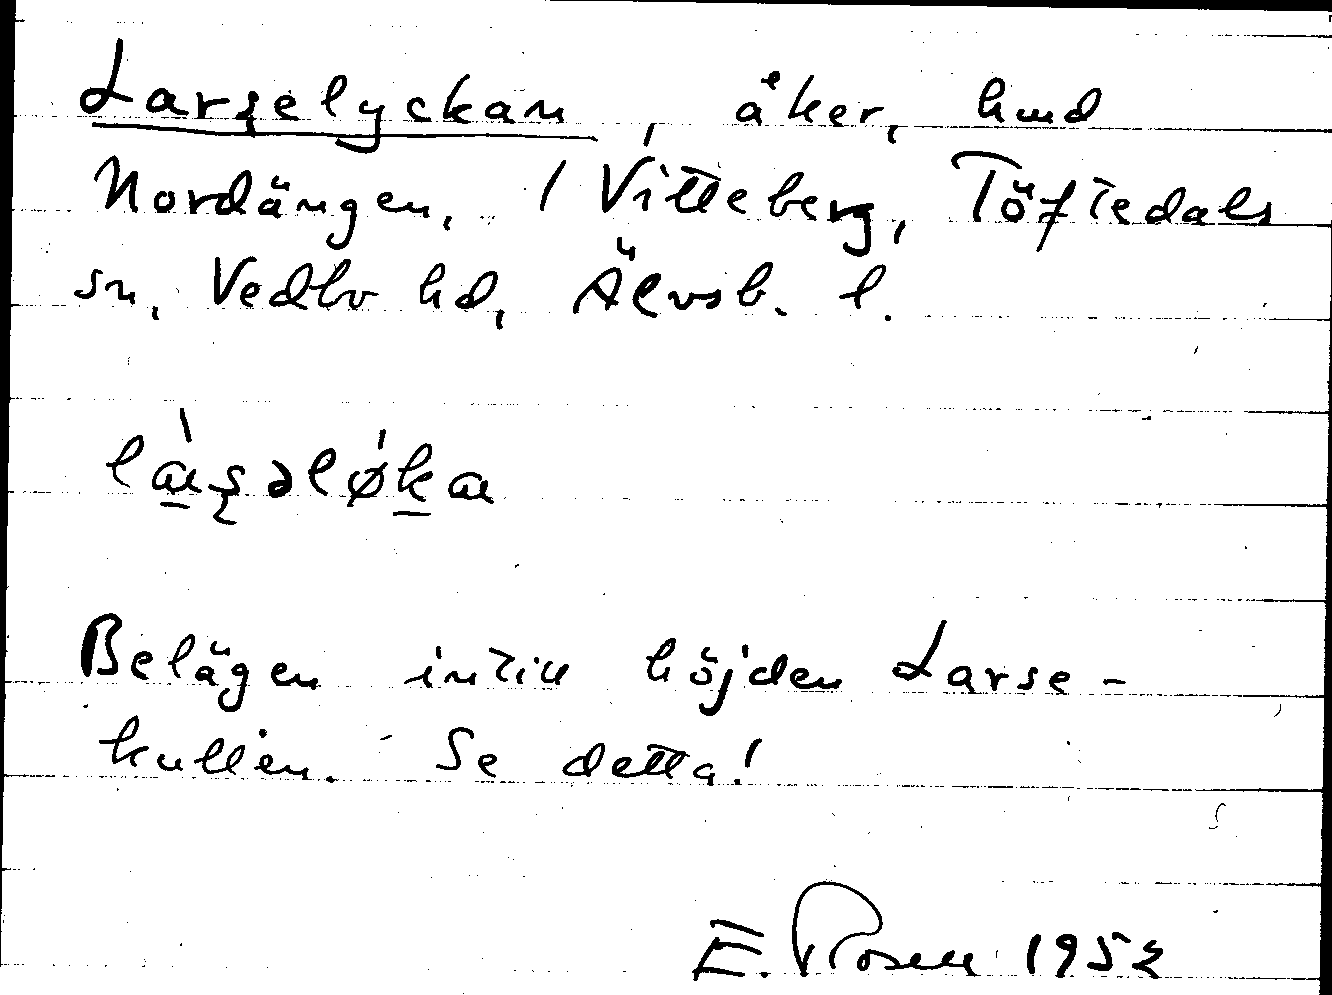 Larselyckan, åker, hmd
Nordängen, 1 Vitteberg, Töftedals
sn, Vedbo hd, Älvsb. l.
Belägen intill höjden Larse-
kullen. Se detta!
E. Rosen 1952